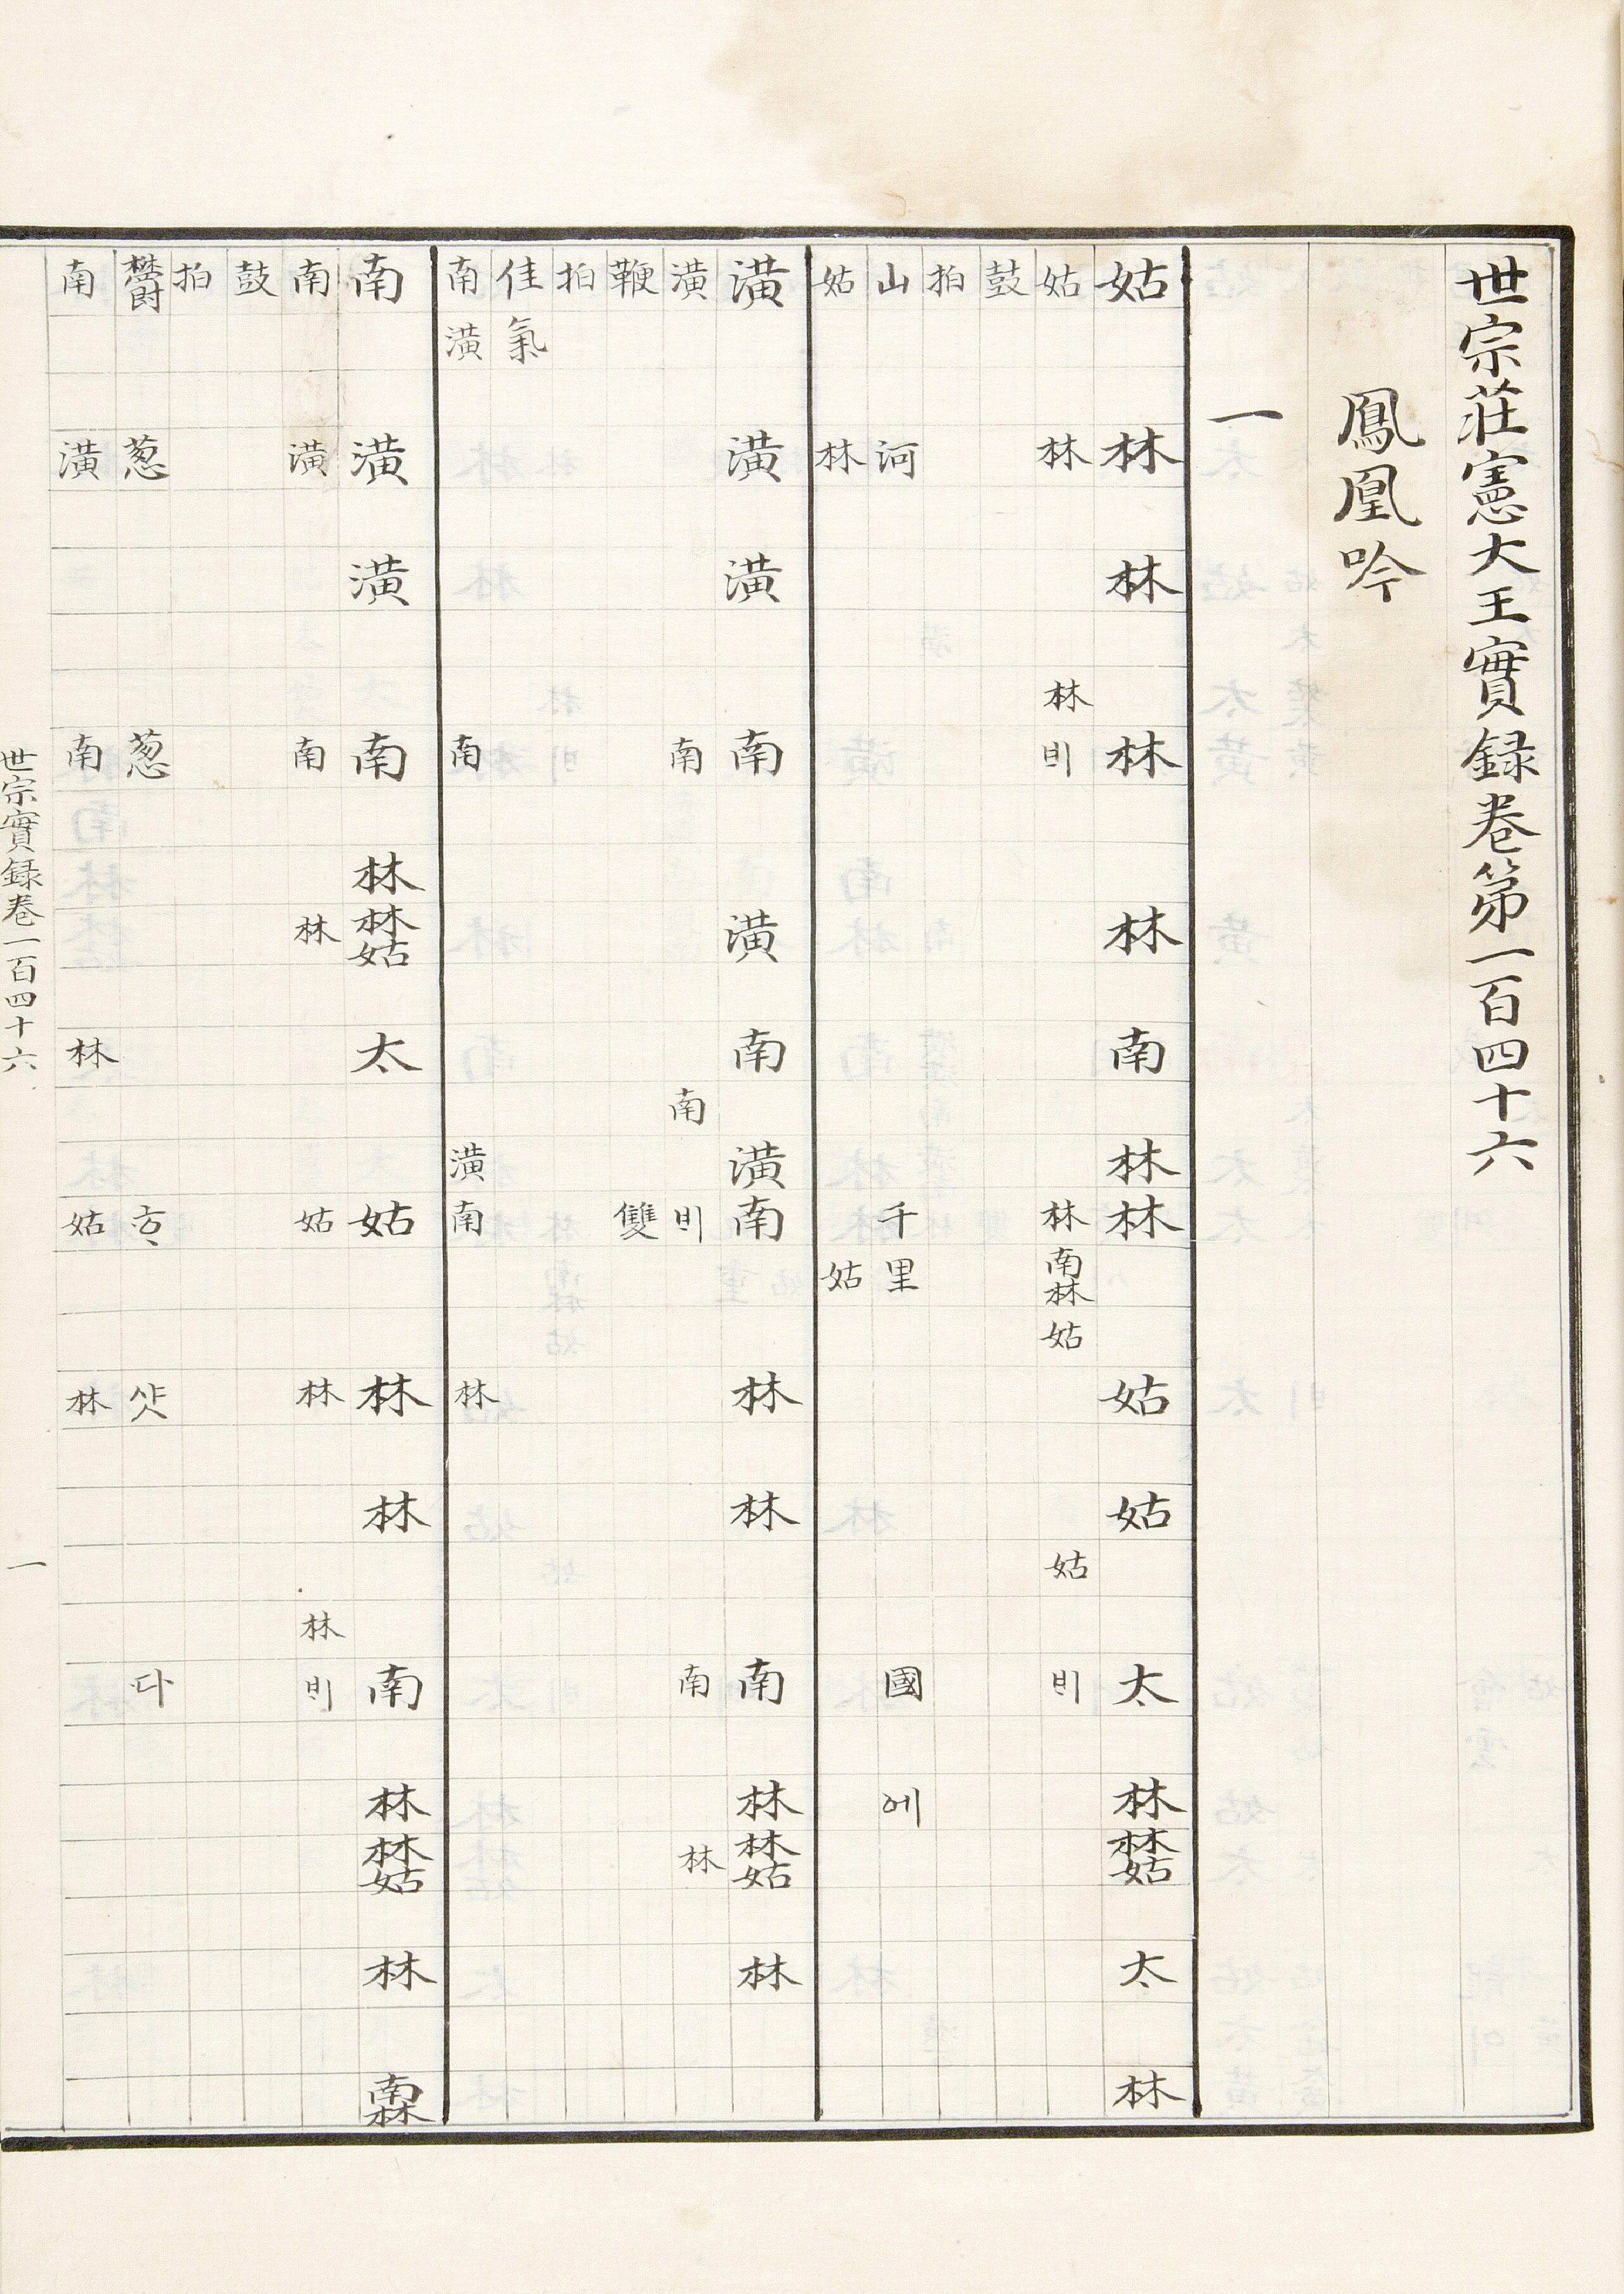 世宗莊憲大王實録卷第一百四十六
鳳凰吟
一
姑林林林林南林林姑姑太林林姑太林
姑林林비林南林姑姑비
鼓
拍
山河千里國에
姑林姑
潢潢潢南潢南潢南林林南林林姑林
潢南南비南林
鞭雙
拍
佳氣
南潢南潢南林
南潢潢南林林姑太姑林林南林林姑林南林
南潢南林姑林林비
鼓
拍
欝葱葱ᄒᆞ샷다
南潢南林姑林
世宗實録卷一百四十六 一